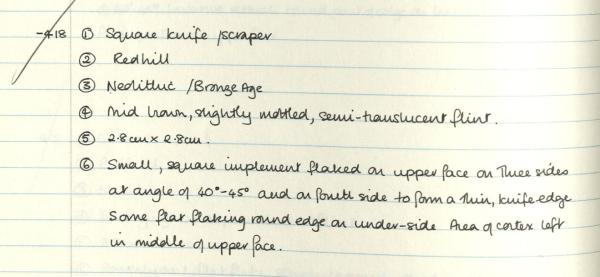 -418 ① Square knife/scraper
② Redhill
③ Neolithic / Bronze Age
④ Mid brown, slightly mottled, semi-translucent flint.
⑤ 2.8cm x 2.8cm.
⑥ Small, square implement flaked on upper face on three sides
at angle of 40°-45° and on fourth side to form a thin, knife edge
Some flat flaking round edge on under-side Area of cortex left
in middle of upper face.